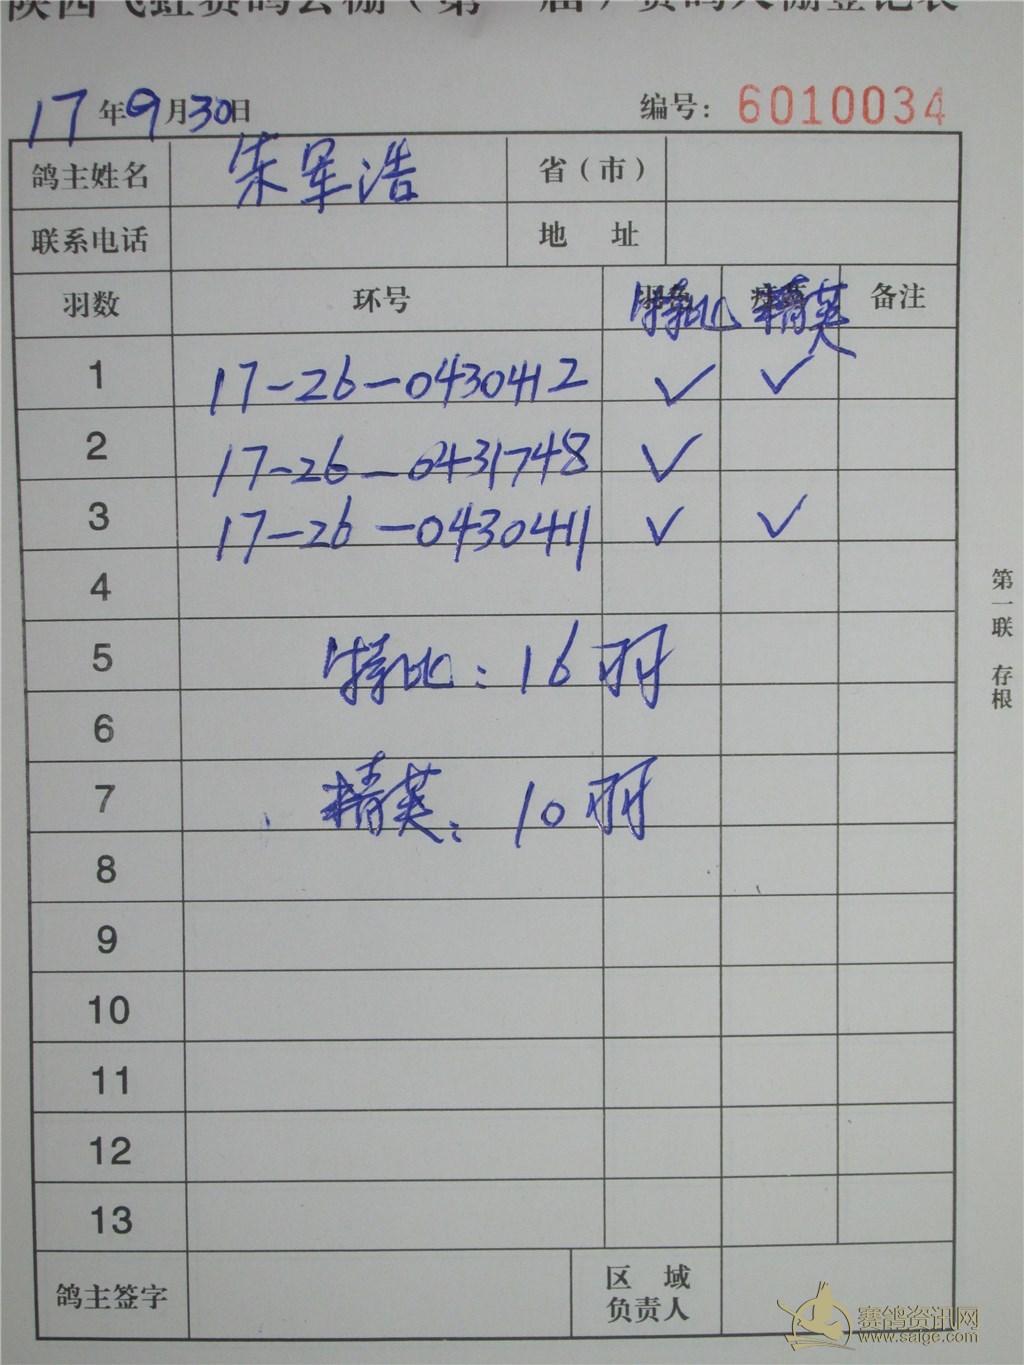 陕西飞虹赛鸽公棚（第 届）赛鸽入棚登记表
17年9月30日 编号：6010034
鸽主姓名 朱军浩 省（市）
联系电话 地 址
羽数 环号 特比 精英 备注
1 17-26-0430412 ✓ ✓
2 17-26-0431748 ✓
3 17-26-0430411 ✓ ✓
4
5 特比：16羽
6
7 精英：10羽
8
9
10
11
12
13
鸽主签字 区域负责人
第一联 存根
赛鸽资讯网
www.saige.com